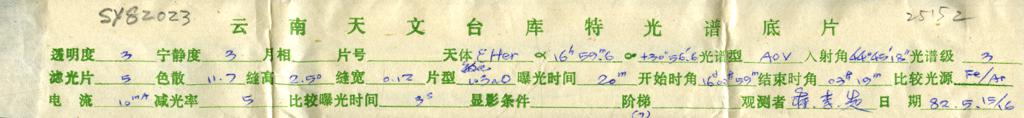 SY82023 云南天文台库特光谱底片 25152
透明度 3 宁静度 3 月相 片号 天体 ε Her α 16ʰ59ᵐ.6 δ +30°56.6 光谱型 A0V 入射角 44°45'18" 光谱级 3
滤光片 5 色散 11.7 缝高 2.50 缝宽 0.12 片型 103aO 曝光时间 20ᵐ 开始时角 结束时角 03ᵐ19ᵐ 比较光源 Fe/Ar
电流 10ᵐᴬ 减光率 5 比较曝光时间 3ˢ 显影条件 阶梯 观测者 日期 82.5.15/16
(7)